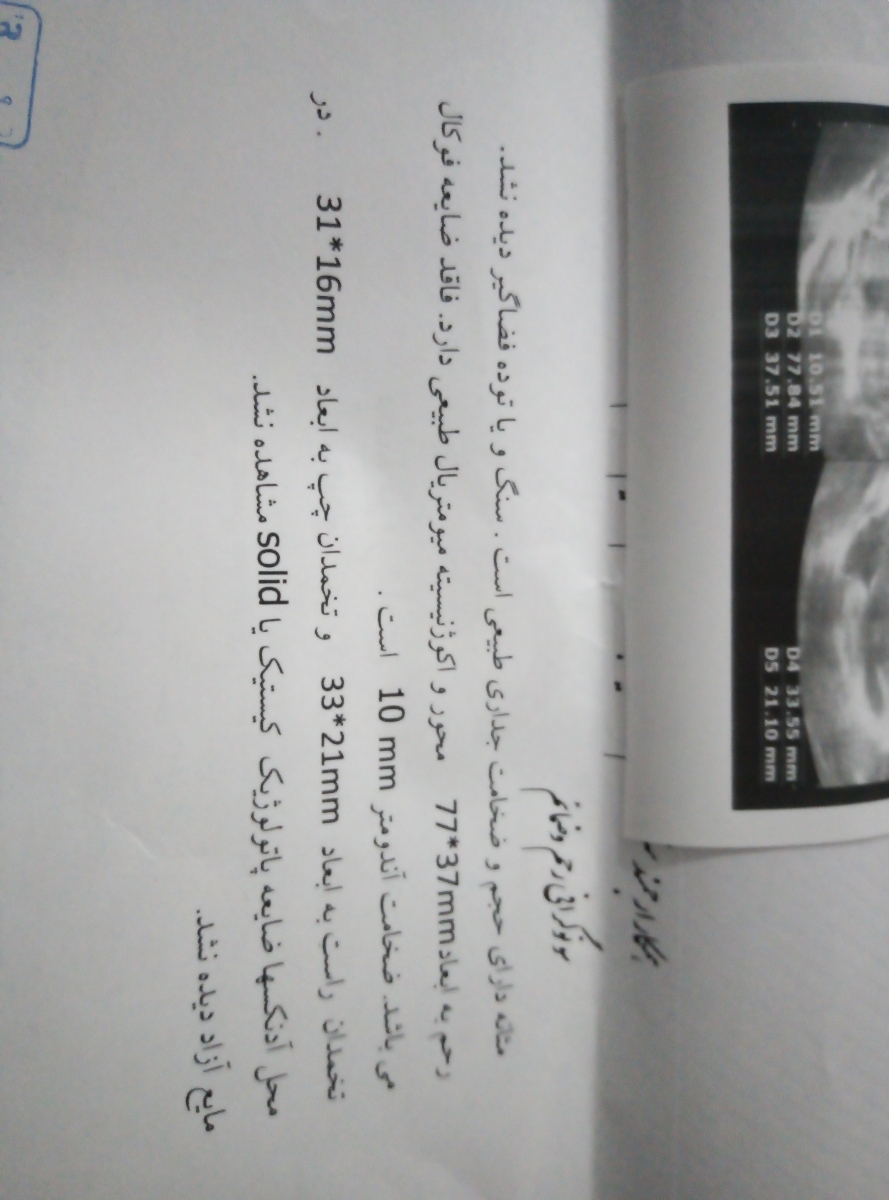 D1 10.51 mm
D2 77.84 mm
D3 37.51 mm
D4 33.55 mm
D5 21.10 mm
همکار ارجمند
سونوگرافی رحم و ضمائم
مثانه دارای حجم و ضخامت جداری طبیعی است . سنگ و یا توده فضاگیر دیده نشد.
رحم به ابعاد 77*37mm محور و اکوژنیسیته میومتریال طبیعی دارد. فاقد ضایعه فوکال
می باشد. ضخامت آندومتر 10 mm است .
تخمدان راست به ابعاد 33*21mm و تخمدان چپ به ابعاد 31*16mm . در
محل آدنکسها ضایعه پاتولوژیک کیستیک یا solid مشاهده نشد.
مایع آزاد دیده نشد.